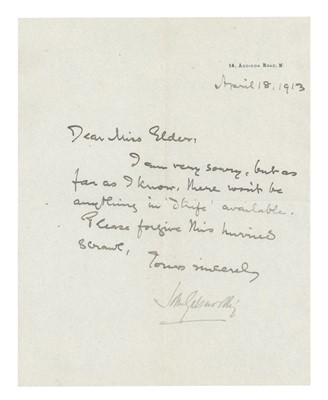 14, Addison Road, W
April 18. 1913
Dear Miss Elder,
I am very sorry, but as
far as I know, there won't be
anything in 'Strife' available.
Please forgive this hurried
scrawl,
Yours sincerely
John Galsworthy